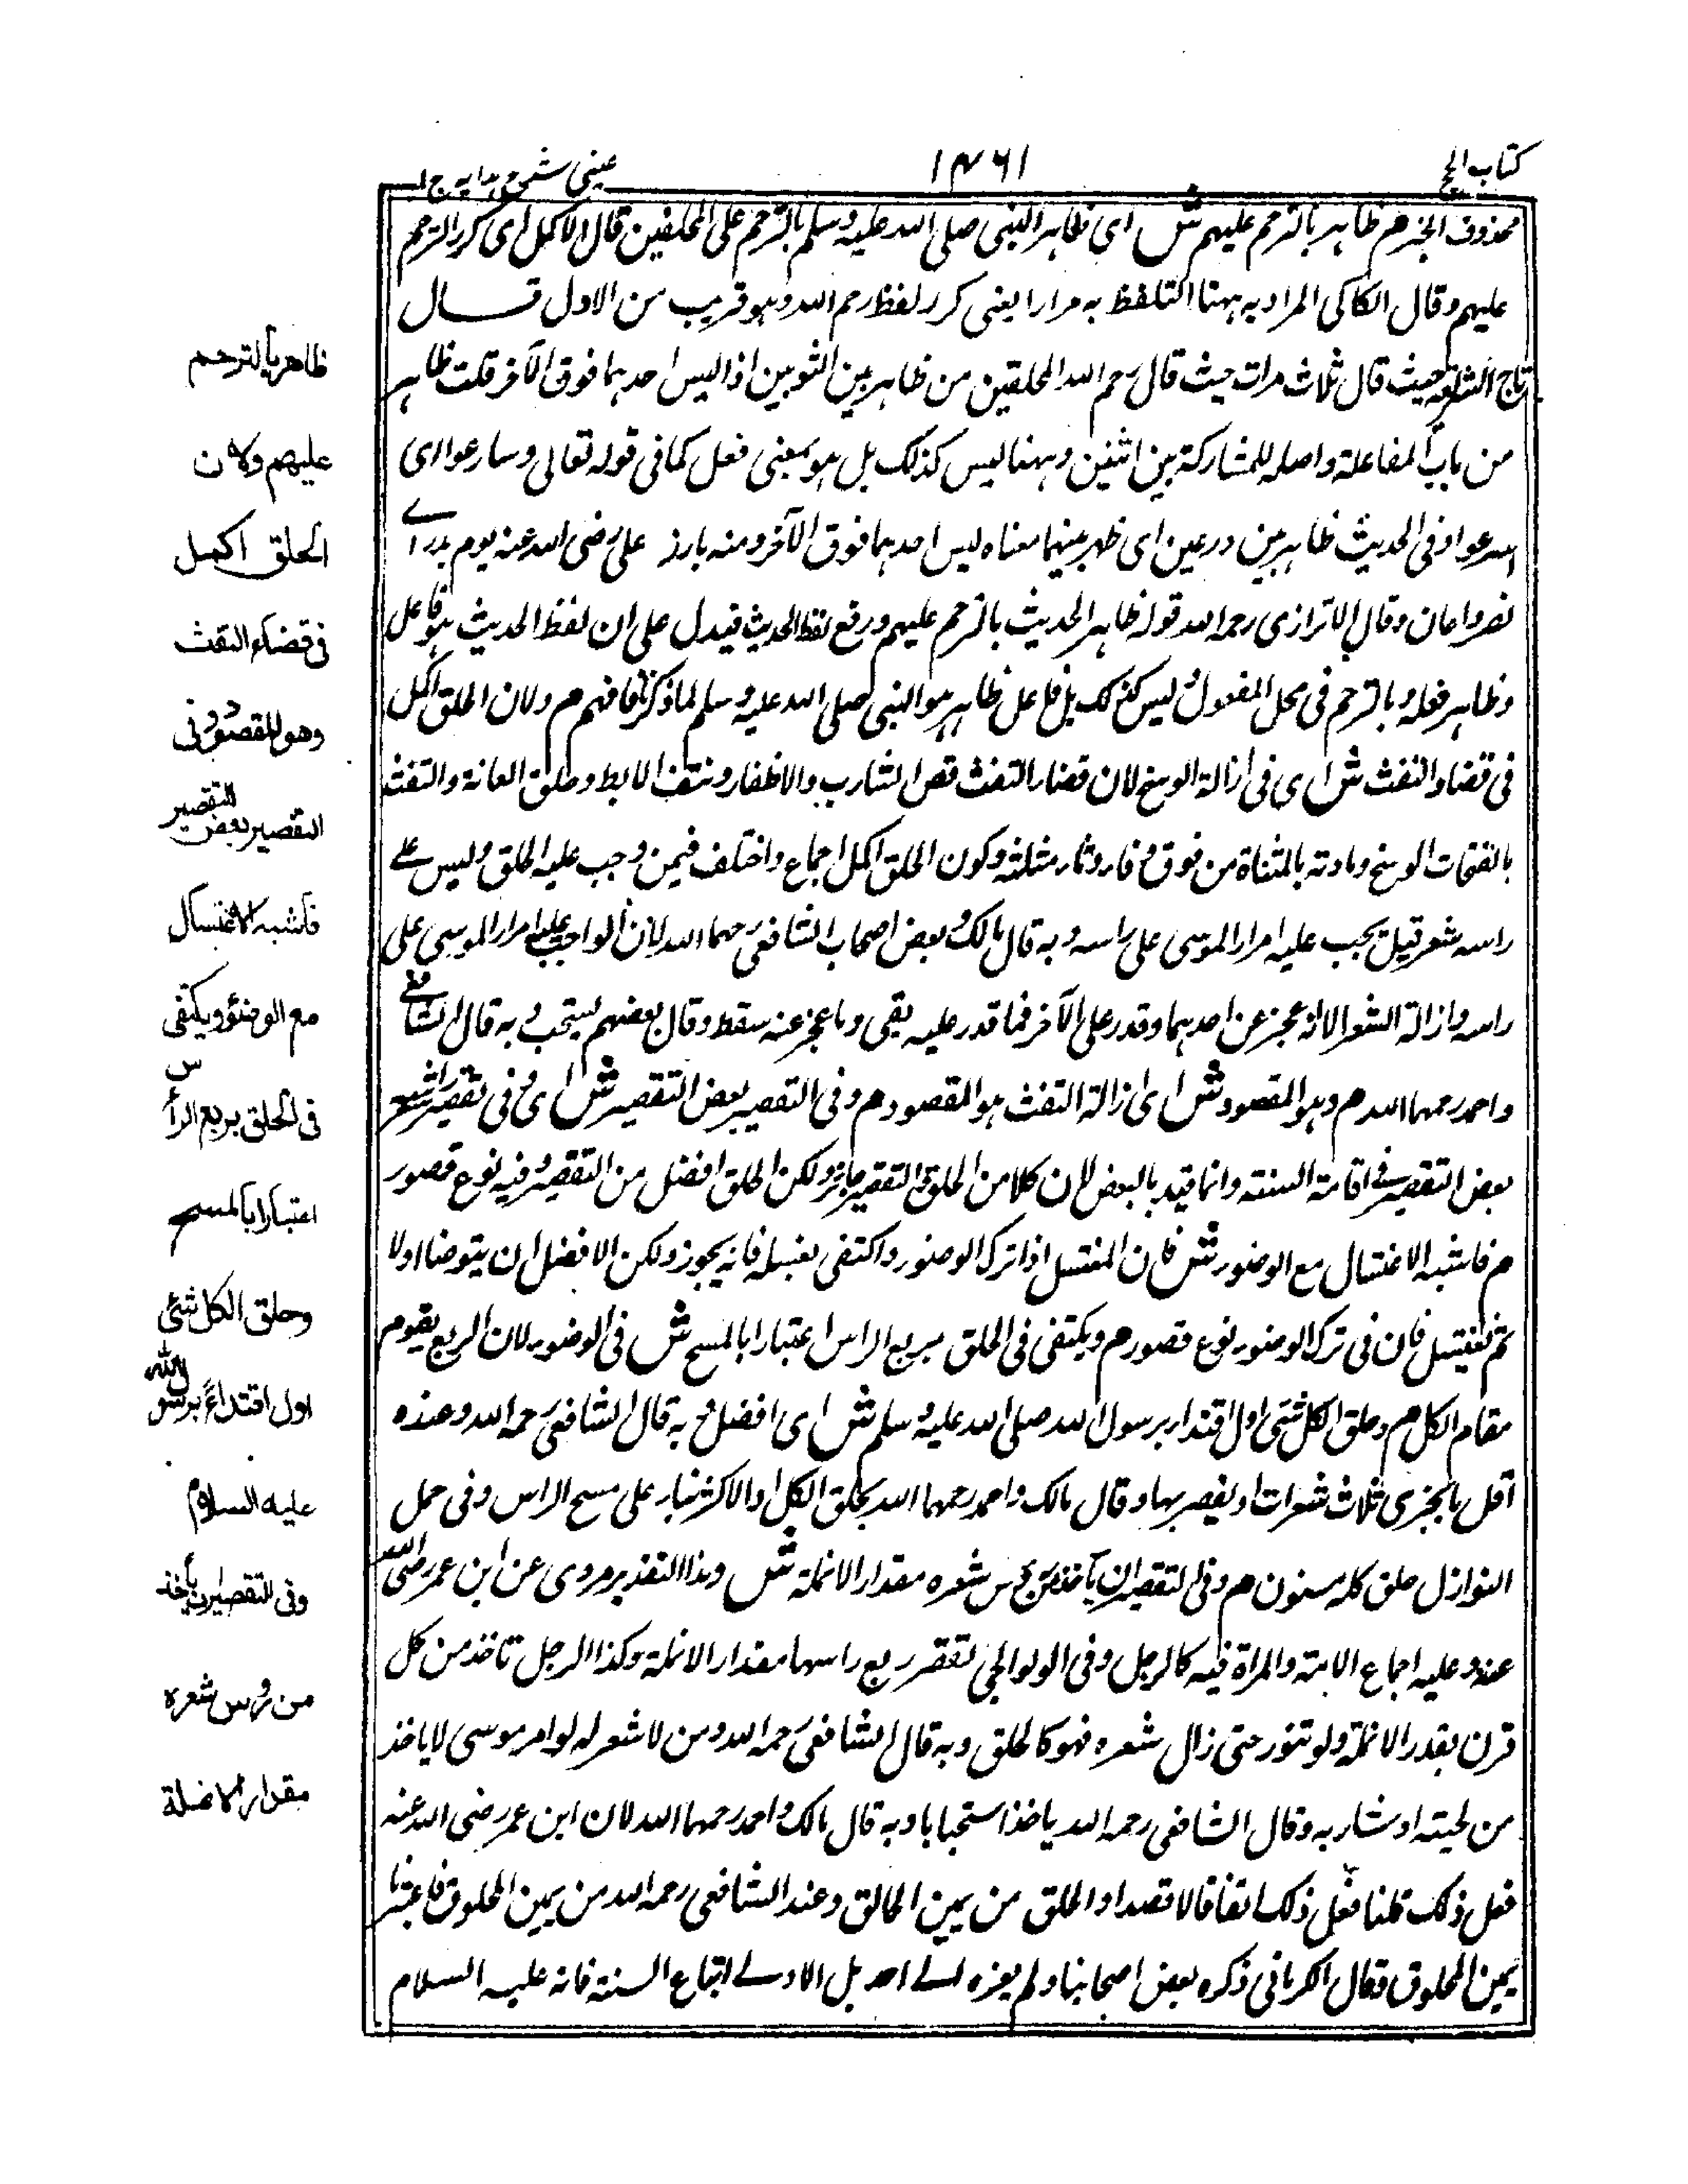 كتاب الحج
١٤٦١
عينى شرح هدايه ج١
محذوف الخبر م ظاهر بالترحم عليهم ش اى ظاهر النبى صلى الله عليه وسلم بالترحم على المحلقين قال الاكمل اى كرر الترحم
عليهم وقال الكاكى المراد به ههنا التلفظ به مرارا يعنى كرر لفظ رحم الله وهو قريب من الاول قال
تاج الشريعة حيث قال ثلاث مرات حيث قال رحم الله المحلقين من ظاهر بين الثوبين اذا لبس احدهما فوق الآخر قلت ظاهر
من باب المفاعلة واصله للمشاركة بين اثنين وههنا ليس كذلك بل هو بمعنى فعل كما فى قوله تعالى وسارعوا اى
اسرعوا وفى الحديث ظاهر بين درعين اى ظهر بينهما معناه لبس احدهما فوق الآخر ومنه بارز على رضى الله عنه يوم بدر اے
نصر واعان وقال الاترازى رحمه الله قوله ظاهر الحديث بالترحم عليهم ورفع لفظ الحديث فيدل على ان لفظ الحديث هو فاعل
وظاهر فعله وبالترحم فى محل المفعول وليس كذلك بل فاعل ظاهر هو النبى صلى الله عليه وسلم لما ذكرنا فافهم م ولان الحلق اكمل
فى قضاء التفث ش اى فى ازالة الوسخ لان قضاء التفث قص الشارب والاظفار ونتف الابط وحلق العانة والتفث
بالفتحات الوسخ ومادته بالمثناة من فوق وفاء وثاء مثلثة وكون الحلق اكمل اجماع واختلف فيمن وجب عليه الحلق وليس على
راسه شعر قيل يجب عليه امرار الموسى على راسه وبه قال مالك وبعض اصحاب الشافعى رحمهما الله لان الواجب عليه امرار الموسى على
راسه وازالة الشعر الا انه عجز عن احدهما وقدر على الآخر فما قدر عليه بقى وما عجز عنه سقط وقال بعضهم يستحب وبه قال الشافعى
واحمد رحمهما الله م وهو المقصود ش اى ازالة التفث هو المقصود م وفى التقصير بعض التقصير ش اى وفى تقصير الشعر
بعض التقصير فى اقامة السنة وانما قيد بالبعض لان كلا من الحلق والتقصير جائز ولكن الحلق افضل من التقصير وفيه نوع قصور
م فاشبه الاغتسال مع الوضوء ش فان المغتسل اذا ترك الوضوء واكتفى بغسله فانه يجوز ولكن الافضل ان يتوضا اولا
ثم يغتسل فان فى ترك الوضوء نوع قصور م ويكتفى فى الحلق بربع الراس اعتبارا بالمسح ش فى الوضوء لان الربع يقوم
مقام الكل م وحلق الكل شئى اولى اقتداء برسول الله صلى الله عليه وسلم ش اى افضل وبه قال الشافعى رحمه الله وعنده
اقل ما يجزى ثلاث شعرات او يقصر بها وقال مالك واحمد رحمهما الله يحلق الكل او الاكثر بناء على مسح الراس وفى حمل
النوازل حلق كله مسنون م وفى التقصير ان يأخذ من رؤس شعره مقدار الانملة ش وهذا التقدير مروى عن ابن عمر رضى الله
عنه وعليه اجماع الامة والمراة فيه كالرجل وفى الولوالجى تقصر ربع راسها مقدار الانملة وكذا الرجل تاخذ من كل
قرن بقدر الانملة ولو تنور حتى زال شعره فهو كالحلق وبه قال الشافعى رحمه الله ومن لا شعر له لو امر موسى لا ياخذ
من لحيته او شاربه وقال الشافعى رحمه الله ياخذ استحبابا وبه قال مالك واحمد رحمهما الله لان ابن عمر رضى الله عنه
فعل ذلك قلنا فعل ذلك اتفاقا لا قصدا والحلق من يمين الحالق وعند الشافعى رحمه الله من يمين المحلوق فاعتبر
يمين المحلوق وقال الكرمانى ذكره بعض اصحابنا ولم يعزه الے احد بل الاولے اتباع السنة فانه عليه السلام
ظاهر بالترحم
عليهم ولان
الحلق اكمل
فى قضاء التفث
وهو المقصود وفى
التقصير بعض التقصير
فاشبه الاغتسال
مع الوضوء ويكتفى
فى الحلق بربع الرأس
اعتبارا بالمسح
وحلق الكل شئ
اولى اقتداءً برسول الله
عليه السلام
وفى التقصير ان يأخذ
من رؤس شعره
مقدار الانملة